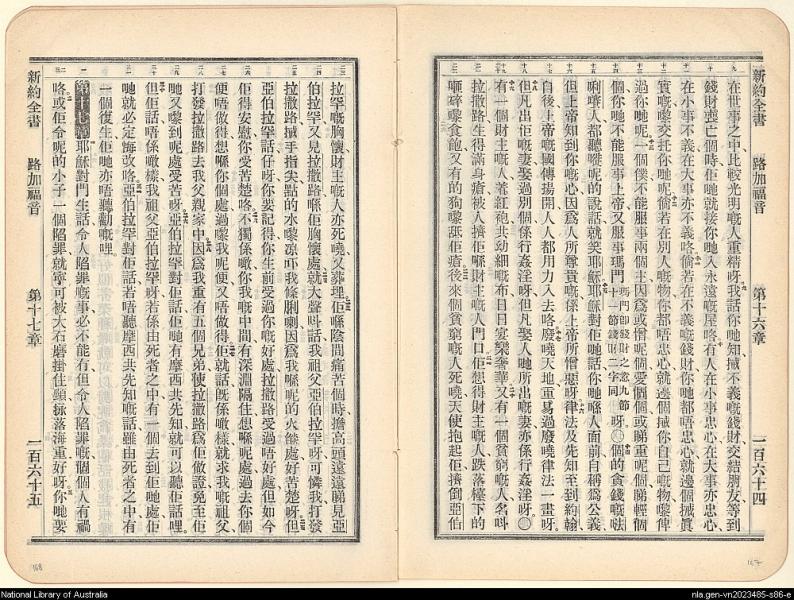 新約全書 路加福音 第十六章 一百六十四
在世事之中比較光明嘅人重精呀我話你哋知搣不義嘅錢財交結朋友等到
錢財喪亡個時佢哋就接你哋入永遠嘅屋咯有人在小事忠心在大事亦忠心
在小事不義在大事亦不義咯倘若在不義嘅錢財你哋都唔忠心就邊個搣眞
實嘅嚟交托你哋呢倘若在別人嘅物你都唔忠心就邊個搣你自己嘅物嚟俾
過你哋呢一個僕不能服事兩個主因爲或僧呢個愛嗰個或睇重呢個睇輕個
個你哋不能服事上帝又服事瑪門 瑪門卽錢財之意九節十一節錢財二字同 呀〇個的貪錢嘅㗎
唎嚷人都聽聞呢的說話就笑耶穌耶穌對佢哋話你哋喺人面前自稱爲公義
但上帝知到你嘅心因爲人所尊貴嘅係上帝所憎惡呀律法及先知至到約翰
自後上帝嘅國傳揚開人人都用力入去咯廢嘵天地重易過廢嘵律法一畫呀
但凡出佢嘅妻娶過別個係行姦淫呀但凡娶人哋所出嘅妻亦係行姦淫呀〇
有一個財主嘅人著紅袍共幼細嘅布日日宴樂奢華又有一個貧窮嘅人名叫
拉撒路生得滿身瘡被人擠佢喺財主嘅人門口佢想得財主嘅人跌落檯下的
碎嚟食飽又有的狗嚟舐佢瘡後來個貧窮嘅人死嘵天使抱起佢擠倒亞伯
拉罕嘅胸懷財主嘅人亦死嘵又葬埋佢喺陰間痛苦個時擔高頭遠遠睇見亞
伯拉罕又見拉撒路喺佢胸懷處就大聲呌話我祖父亞伯拉罕呀可憐我打發
拉撒路搣手指尖點的水嚟凉吓我條脷喇因爲我喺呢的火燄處好苦楚呀但
亞伯拉罕話仔呀你要記得你生前受過你嘅好處拉撒路受過唔好處但如今
佢得安慰你受苦楚咯不獨係噉你我嘅中間有深淵隔住想喺呢處過去你個
便唔做得想喺你個處過嚟我呢便又唔做得佢就話旣係噉樣就求我嘅祖父
打發拉撒路去我父親家中因爲我重有五個兄弟使拉撒路爲佢做證免至佢
哋又嚟到呢處受苦呀亞伯拉罕對佢話佢哋有摩西共先知就可以聽佢話哩
但佢話唔係噉樣我祖父亞伯拉罕呀若係由死者之中有一個去到佢哋處佢
哋就必定悔改咯亞伯拉罕對佢話若唔聽摩西共先知嘅話雖由死者之中有
一個復生佢哋亦唔聽勸嘅哩
第十七章 耶穌對門生話令人陷罪嘅事必不能有但令人陷罪嘅嗰個人有禍
咯或佢令呢的小子一個陷罪就寧可被大石磨掛住頸掭落海重好呀你哋要
新約全書 路加福音 第十七章 一百六十五
168
167
National Library of Australia
nla.gen-vn2023485-s86-e